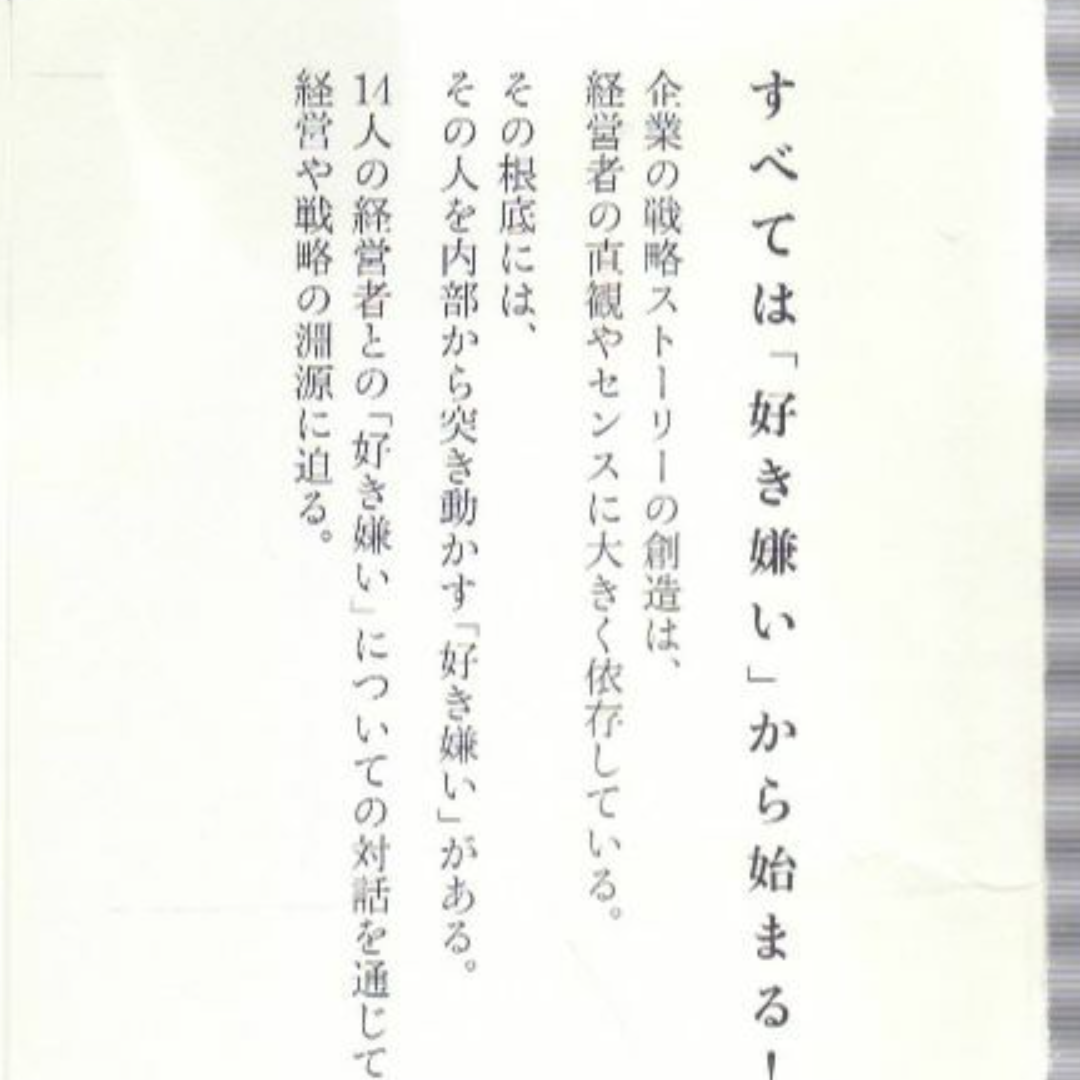 すべては「好き嫌い」から始まる!
企業の戦略ストーリーの創造は、
経営者の直観やセンスに大きく依存している。
その根底には、
その人を内部から突き動かす「好き嫌い」がある。
14人の経営者との「好き嫌い」についての対話を通じて
経営や戦略の淵源に迫る。